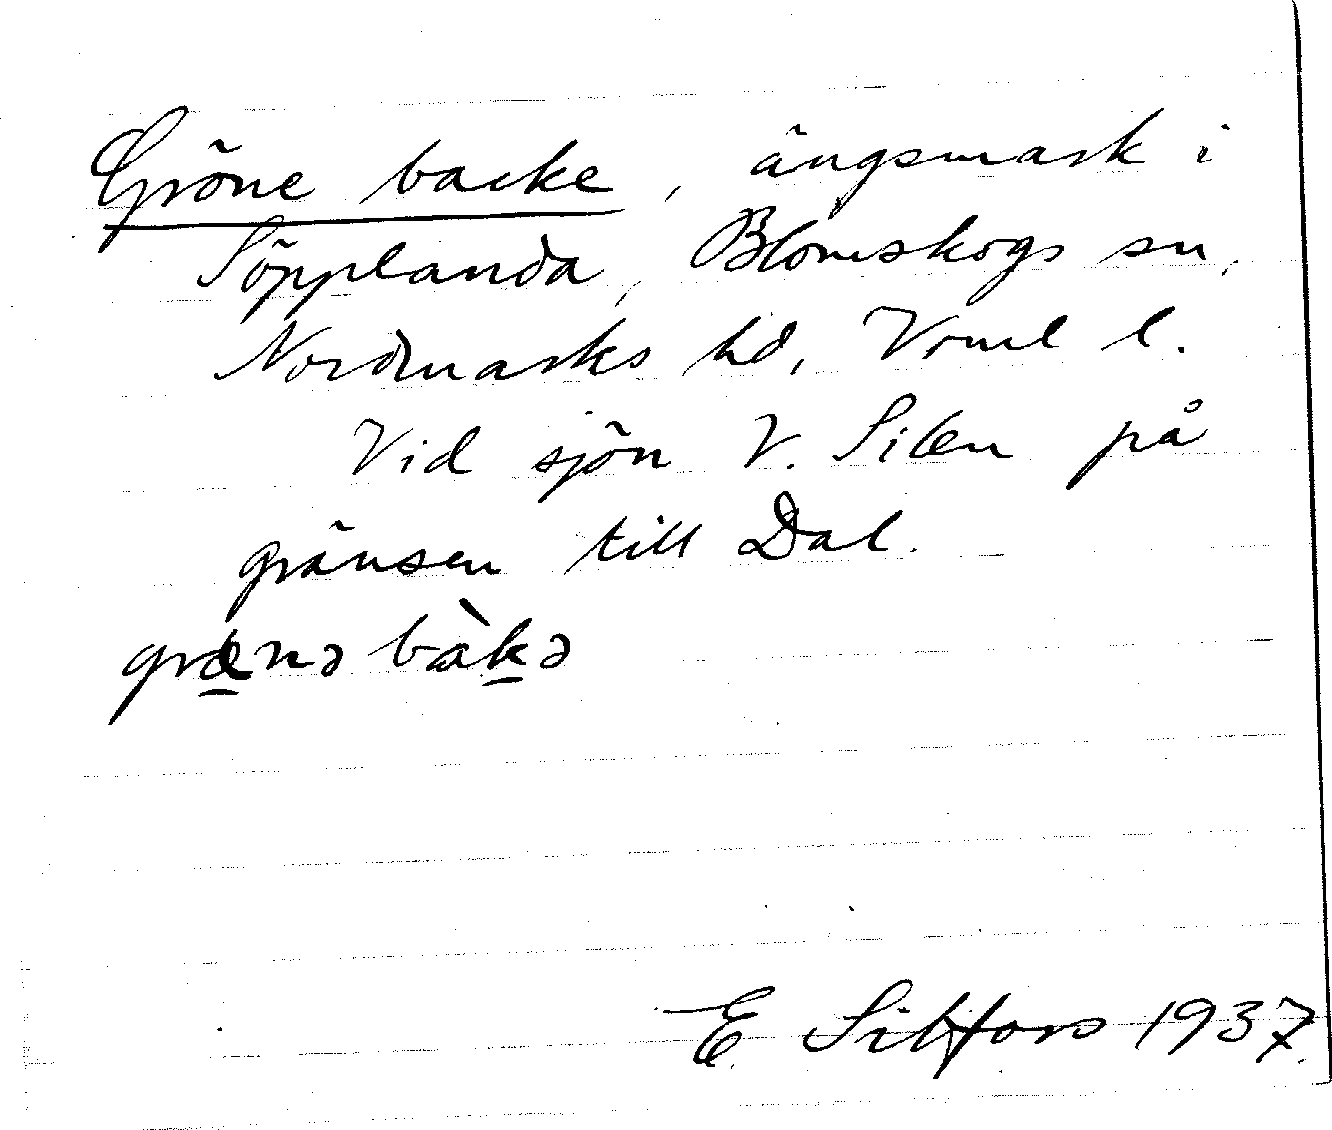 Gröne backe, ängsmark i
Söpplanda, Blomskogs sn,
Nordmarks hd, Vrml l.
Vid sjön V. Silen på
gränsen till Dal.
grænə bàkə
E Silfors 1937.